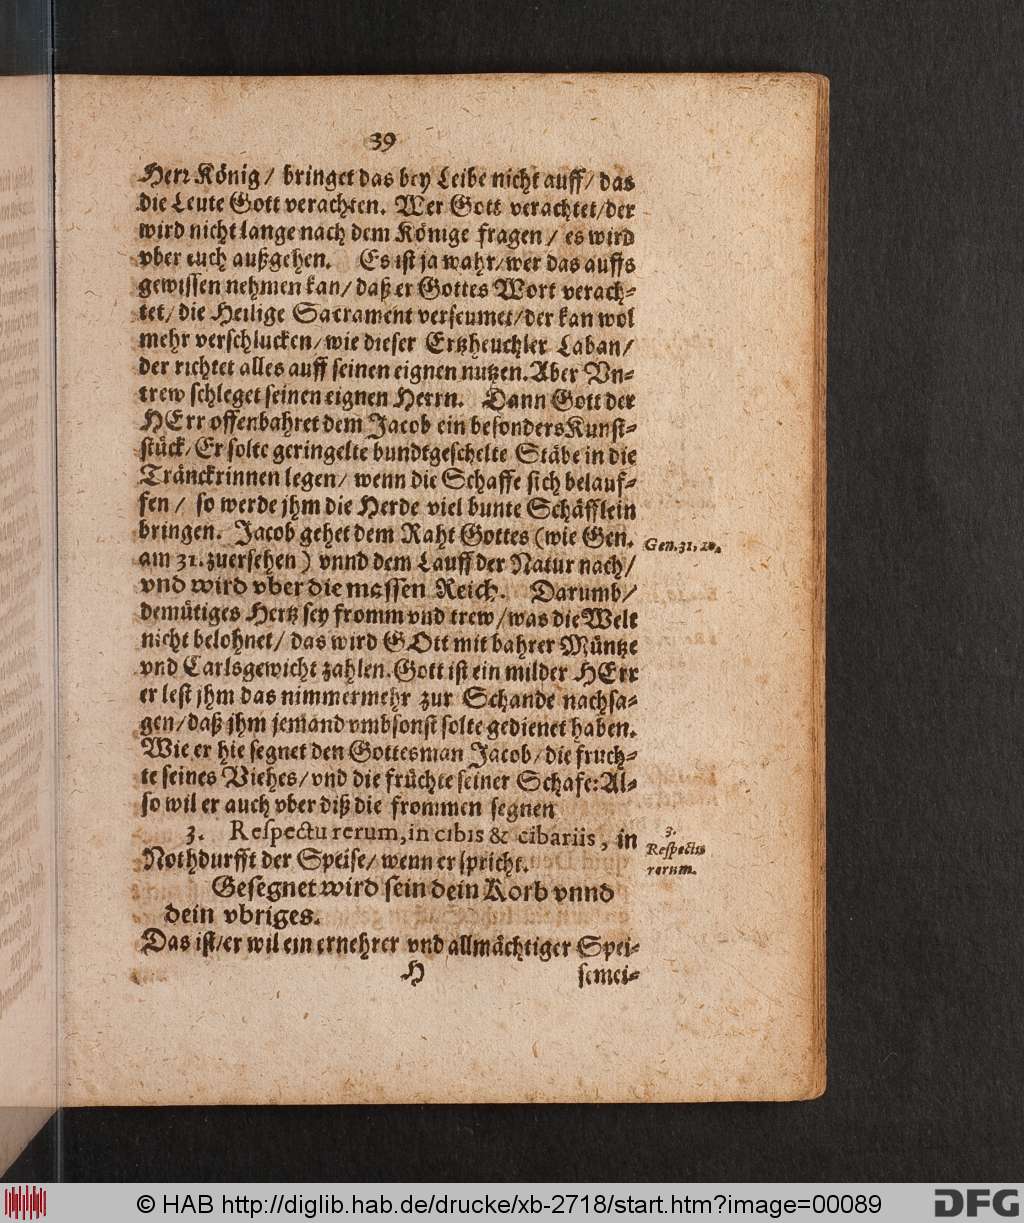 39
Herr König / bringet das bey Leibe nicht auff / das
die Leute Gott verachten. Wer Gott verachtet / der
wird nicht lange nach dem Könige fragen / es wird
vber euch außgehen. Es ist ja wahr / wer das auffs
gewissen nehmen kan / daß er Gottes Wort verach-
tet / die Heilige Sacrament verseumet / der kan wol
mehr verschlucken / wie dieser Ertzheuchler Laban /
der richtet alles auff seinen eignen nutzen. Aber Vn-
trew schleget seinen eignen Herrn. Dann Gott der
HErr offenbahret dem Jacob ein besonders Kunst-
stück / Er solte geringelte bundtgeschelte Stäbe in die
Tränckrinnen legen / wenn die Schaffe sich belauf-
fen / so werde jhm die Herde viel bunte Schäfflein
bringen. Jacob gehet dem Raht Gottes (wie Gen.
Gen. 31, 10.
am 31. zuersehen) vnnd dem Lauff der Natur nach /
vnd wird vber die massen Reich. Darumb /
demütiges Hertz sey fromm vnd trew / was die Welt
nicht belohnet / das wird GOtt mit bahrer Müntze
vnd Carlsgewicht zahlen. Gott ist ein milder HErr
er lest jhm das nimmermehr zur Schande nachsa-
gen / daß jhm jemand vmbsonst solte gedienet haben.
Wie er hie segnet den Gottesman Jacob / die fruch-
te seines Viehes / vnd die früchte seiner Schafe: Al-
so wil er auch vber diß die frommen segnen
3. Respectu rerum, in cibis & cibariis, in
3.
Respectu
rerum.
Nothdurfft der Speise / wenn er spricht.
Gesegnet wird sein dein Korb vnnd
dein vbriges.
Das ist / er wil ein ernehrer vnd allmächtiger Spei-
H semei-
© HAB http://diglib.hab.de/drucke/xb-2718/start.htm?image=00089
DFG